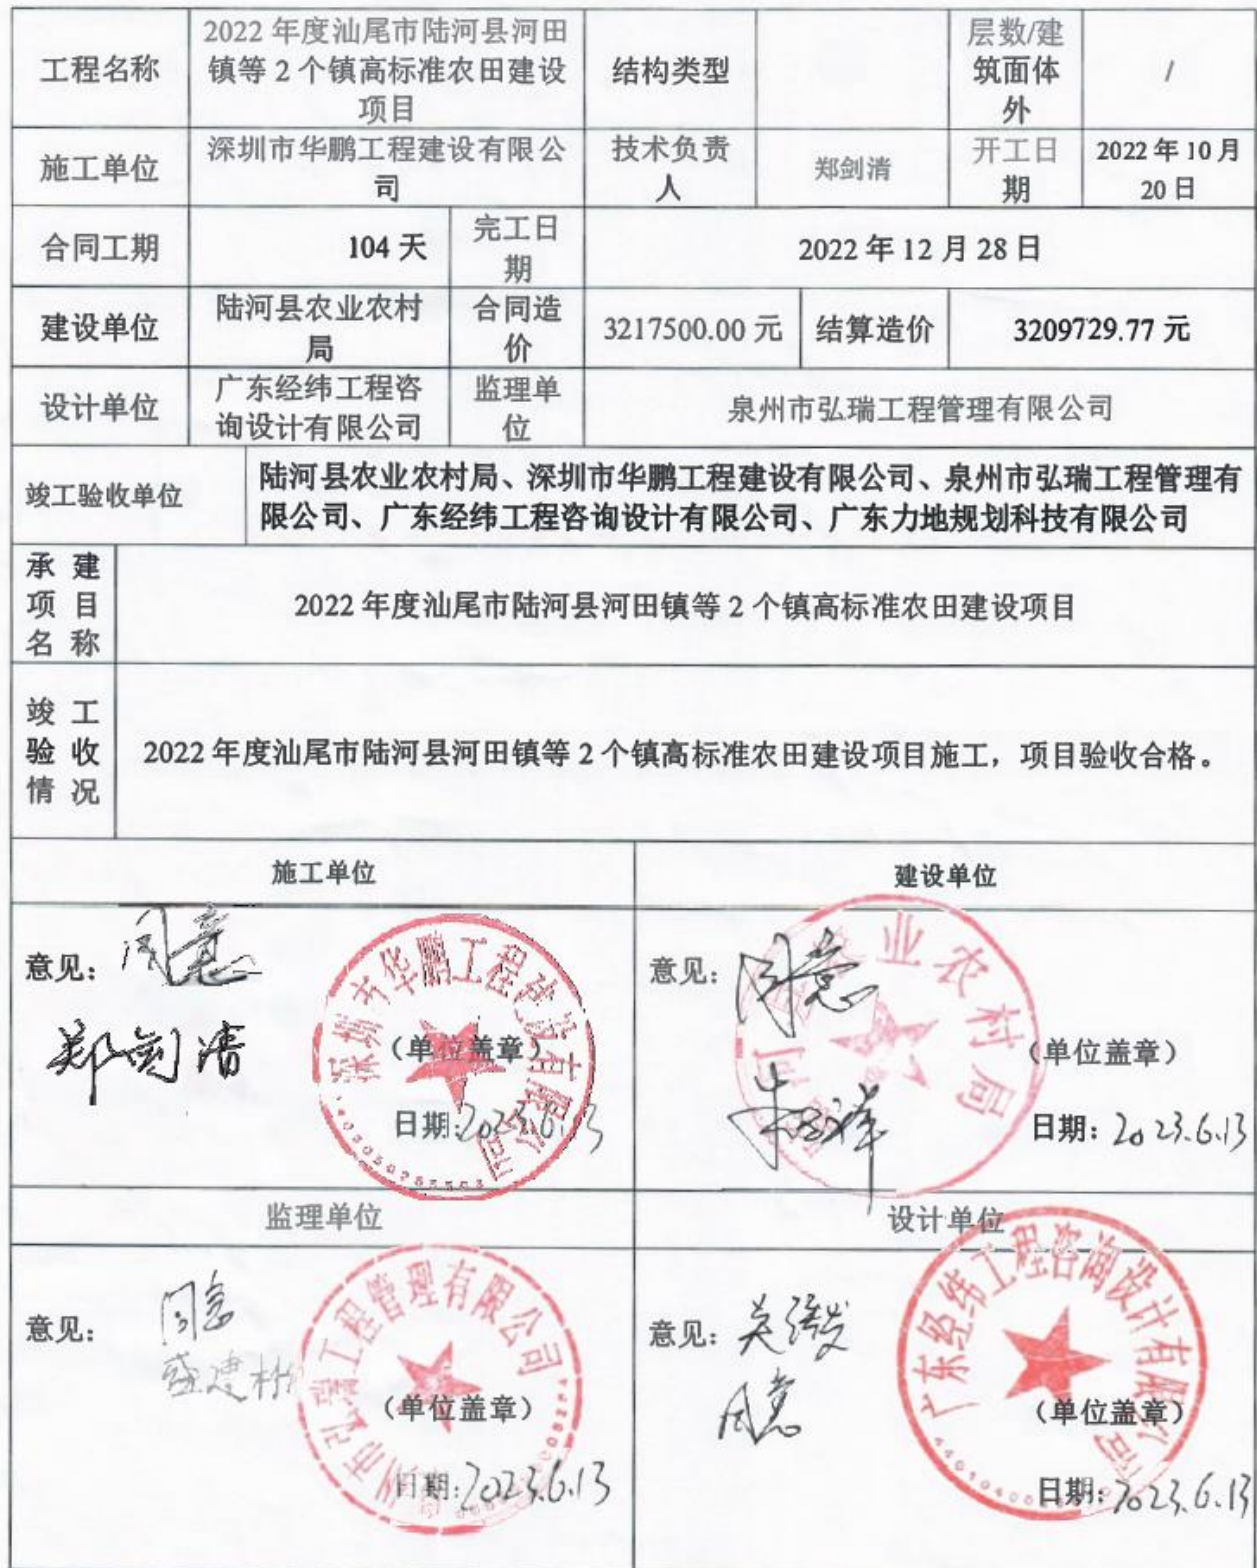 工程名称
2022 年度汕尾市陆河县河田
镇等 2 个镇高标准农田建设
项目
结构类型
层数/建
筑面体
外
/
施工单位
深圳市华鹏工程建设有限公
司
技术负责
人
郑剑清
开工日
期
2022 年 10 月
20 日
合同工期
104 天
完工日
期
2022 年 12 月 28 日
建设单位
陆河县农业农村
局
合同造
价
3217500.00 元
结算造价
3209729.77 元
设计单位
广东经纬工程咨
询设计有限公司
监理单
位
泉州市弘瑞工程管理有限公司
竣工验收单位
陆河县农业农村局、深圳市华鹏工程建设有限公司、泉州市弘瑞工程管理有
限公司、广东经纬工程咨询设计有限公司、广东力地规划科技有限公司
承 建
项 目
名 称
2022 年度汕尾市陆河县河田镇等 2 个镇高标准农田建设项目
竣 工
验 收
情 况
2022 年度汕尾市陆河县河田镇等 2 个镇高标准农田建设项目施工，项目验收合格。
施工单位
建设单位
意见：同意
郑剑清
深圳市华鹏工程建设有限公司
（单位盖章）
日期：2023.6.13
意见：同意
河县农业农村局
（单位盖章）
日期：2023.6.13
监理单位
设计单位
意见：同意
盛建彬
州市弘瑞工程管理有限公司
（单位盖章）
日期：2023.6.13
意见：
同意
广东经纬工程咨询设计有限公司
（单位盖章）
日期：2023.6.13